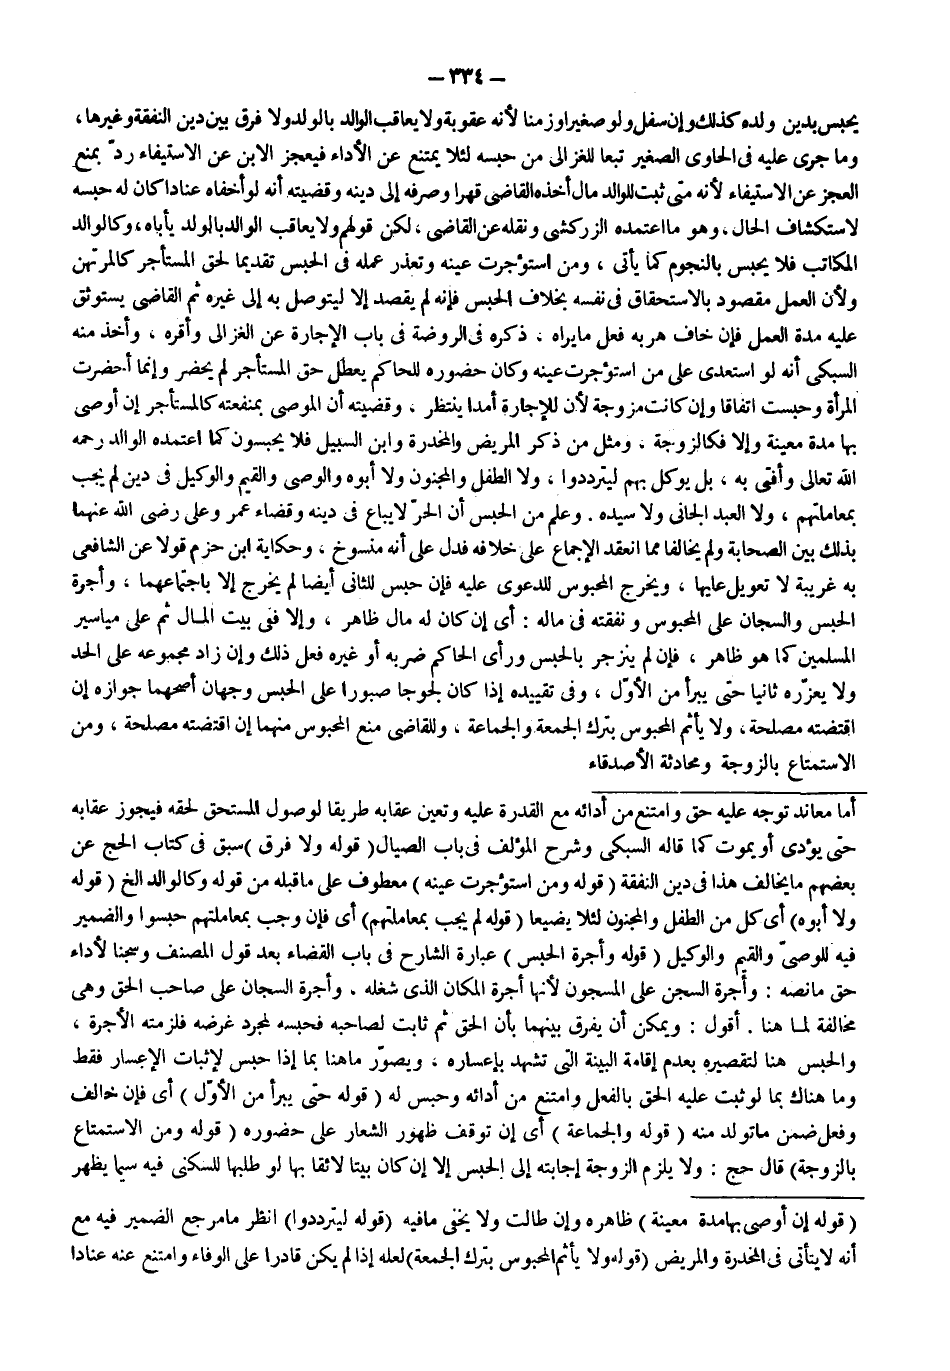 – ٣٣٤ –
يحبس بدين ولده كذلك وإن سفل ولو صغيرا وزمنا لأنه عقوبة ولا يعاقب الوالد بالولد ولا فرق بين دين النفقة وغيرها ،
وما جرى عليه فى الحاوى الصغير تبعا للغزالى من حبسه لئلا يمتنع عن الأداء فيعجز الابن عن الاستيفاء ردّ بمنع
العجز عن الاستيفاء لأنه متى ثبت للوالد مال أخذه القاضى قهرا وصرفه إلى دينه وقضيته أنه لو أخفاه عنادا كان له حبسه
لاستكشاف الحال ، وهو ما اعتمده الزركشى ونقله عن القاضى ، لكن قولهم ولا يعاقب الوالد بالولد يأباه ، وكالوالد
المكاتب فلا يحبس بالنجوم كما يأتى ، ومن استؤجرت عينه وتعذر عمله فى الحبس تقديما لحق المستأجر كالمرتهن
ولأن العمل مقصود بالاستحقاق فى نفسه بخلاف الحبس فإنه لم يقصد إلا ليتوصل به إلى غيره ثم القاضى يستوثق
عليه مدة العمل فإن خاف هربه فعل مايراه ، ذكره فى الروضة فى باب الإجارة عن الغزالى وأقره ، وأخذ منه
السبكى أنه لو استعدى على من استؤجرت عينه وكان حضوره للحاكم يعطل حق المستأجر لم يحضر وإنما أحضرت
المرأة وحبست اتفاقا وإن كانت مزوجة لأن للإجارة أمدا ينتظر ، وقضيته أن الموصى بمنفعته كالمستأجر إن أوصى
بها مدة معينة وإلا فكالزوجة ، ومثل من ذكر المريض والمخدرة وابن السبيل فلا يحبسون كما اعتمده الوالد رحمه
الله تعالى وأفتى به ، بل يوكل بهم ليترددوا ، ولا الطفل والمجنون ولا أبوه والوصى والقيم والوكيل فى دين لم يجب
بمعاملتهم ، ولا العبد الجانى ولا سيده . وعلم من الحبس أن الحرّ لايباع فى دينه وقضاء عمر وعلى رضى الله عنهما
بذلك بين الصحابة ولم يخالفا مما انعقد الإجماع على خلافه فدل على أنه منسوخ ، وحكاية ابن حزم قولا عن الشافعى
به غريبة لا تعويل عليها ، ويخرج المحبوس للدعوى عليه فإن حبس للثانى أيضا لم يخرج إلا باجتماعهما ، وأجرة
الحبس والسجان على المحبوس ونفقته فى ماله : أى إن كان له مال ظاهر ، وإلا ففى بيت المال ثم على مياسير
المسلمين كما هو ظاهر ، فإن لم ينزجر بالحبس ورأى الحاكم ضربه أو غيره فعل ذلك وإن زاد مجموعه على الحد
ولا يعزّره ثانيا حتى يبرأ من الأوّل ، وفى تقييده إذا كان لجوجا صبورا على الحبس وجهان أصحهما جوازه إن
اقتضته مصلحة ، ولا يأثم المحبوس بترك الجمعة والجماعة ، وللقاضى منع المحبوس منهما إن اقتضته مصلحة ، ومن
الاستمتاع بالزوجة ومحادثة الأصدقاء
أما معاند توجه عليه حق وامتنع من أدائه مع القدرة عليه وتعين عقابه طريقا لوصول المستحق لحقه فيجوز عقابه
حتى يؤدى أو يموت كما قاله السبكى وشرح المؤلف فى باب الصيال ( قوله ولا فرق ) سبق فى كتاب الحج عن
بعضهم مايخالف هذا فى دين النفقة ( قوله ومن استؤجرت عينه ) معطوف على ماقبله من قوله وكالوالد الخ ( قوله
ولا أبوه ) أى كل من الطفل والمجنون لئلا يضيعا ( قوله لم يجب بمعاملتهم ) أى فإن وجب بمعاملتهم حبسوا والضمير
فيه للوصىّ والقيم والوكيل ( قوله وأجرة الحبس ) عبارة الشارح فى باب القضاء بعد قول المصنف وسجنا لأداء
حق مانصه : وأجرة السجن على المسجون لأنها أجرة المكان الذى شغله ، وأجرة السجان على صاحب الحق وهى
مخالفة لما هنا . أقول : ويمكن أن يفرق بينهما بأن الحق ثم ثابت لصاحبه فحبسه لمجرد غرضه فلزمته الأجرة ،
والحبس هنا لتقصيره بعدم إقامة البينة التى تشهد بإعساره ، ويصوّر ماهنا بما إذا حبس لإثبات الإعسار فقط
وما هناك بما لو ثبت عليه الحق بالفعل وامتنع من أدائه وحبس له ( قوله حتى يبرأ من الأوّل ) أى فإن خالف
وفعل ضمن ماتولد منه ( قوله والجماعة ) أى إن توقف ظهور الشعار على حضوره ( قوله ومن الاستمتاع
بالزوجة ) قال حج : ولا يلزم الزوجة إجابته إلى الحبس إلا إن كان بيتا لائقا بها لو طلبها للسكنى فيه سيما يظهر
( قوله إن أوصى بها مدة معينة ) ظاهره وإن طالت ولا يخفى مافيه ( قوله ليترددوا ) انظر مامرجع الضمير فيه مع
أنه لايتأتى فى المخدرة والمريض ( قوله ولا يأثم المحبوس بترك الجمعة ) لعله إذا لم يكن قادرا على الوفاء وامتنع عنه عنادا